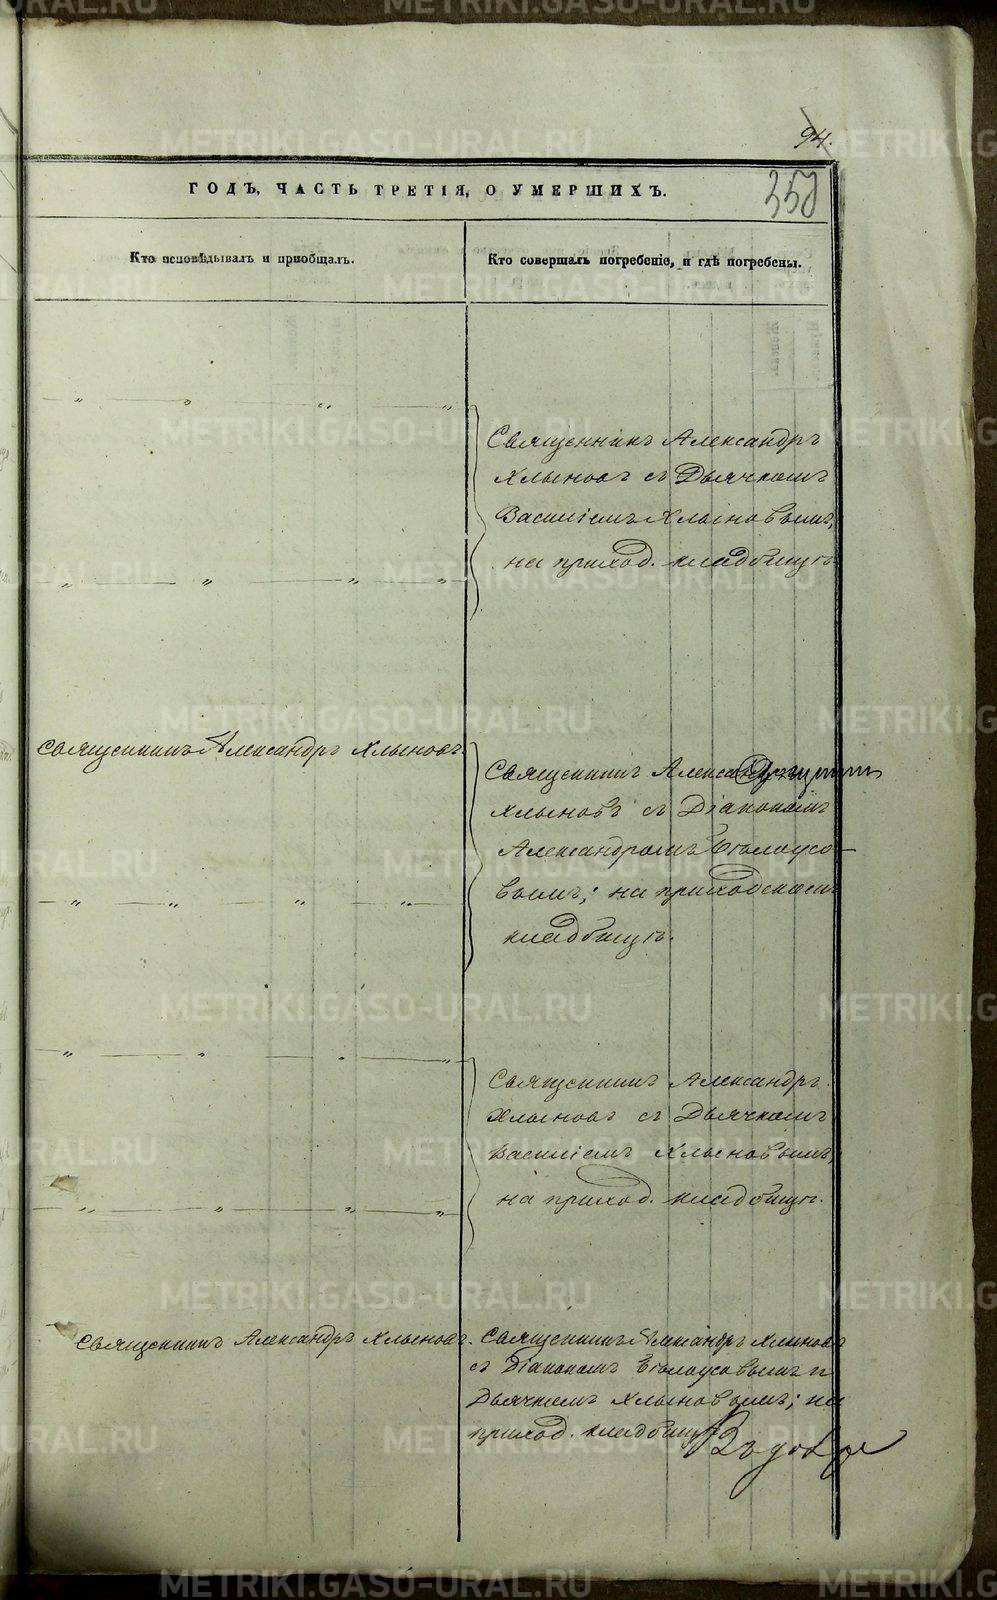 94.
350
ГОДЪ, ЧАСТЬ ТРЕТІЯ, О УМЕРШИХЪ.
Кто исповѣдывалъ и пріобщалъ.
Кто совершалъ погребеніе, и гдѣ погребены.
Священникъ Александръ
Хлыновъ съ Дьячкомъ
Василіемъ Хлыновымъ,
на приход. кладбищѣ
Священникъ Александръ Хлыновъ.
Священникъ
Хлыновъ съ Діакономъ
Александромъ Бѣлоусо-
вымъ; на приходскомъ
кладбищѣ.
Священникъ Александръ
Хлыновъ съ Дьячкомъ
Василіемъ Хлыновымъ;
на приход. кладбищѣ.
Священникъ Александръ Хлыновъ.
Священникъ Александръ Хлыновъ
съ Діакономъ Бѣлоусовымъ и
Дьячкомъ Хлыновымъ; на
приход. кладбищѣ
METRIKI.GASO-URAL.RU